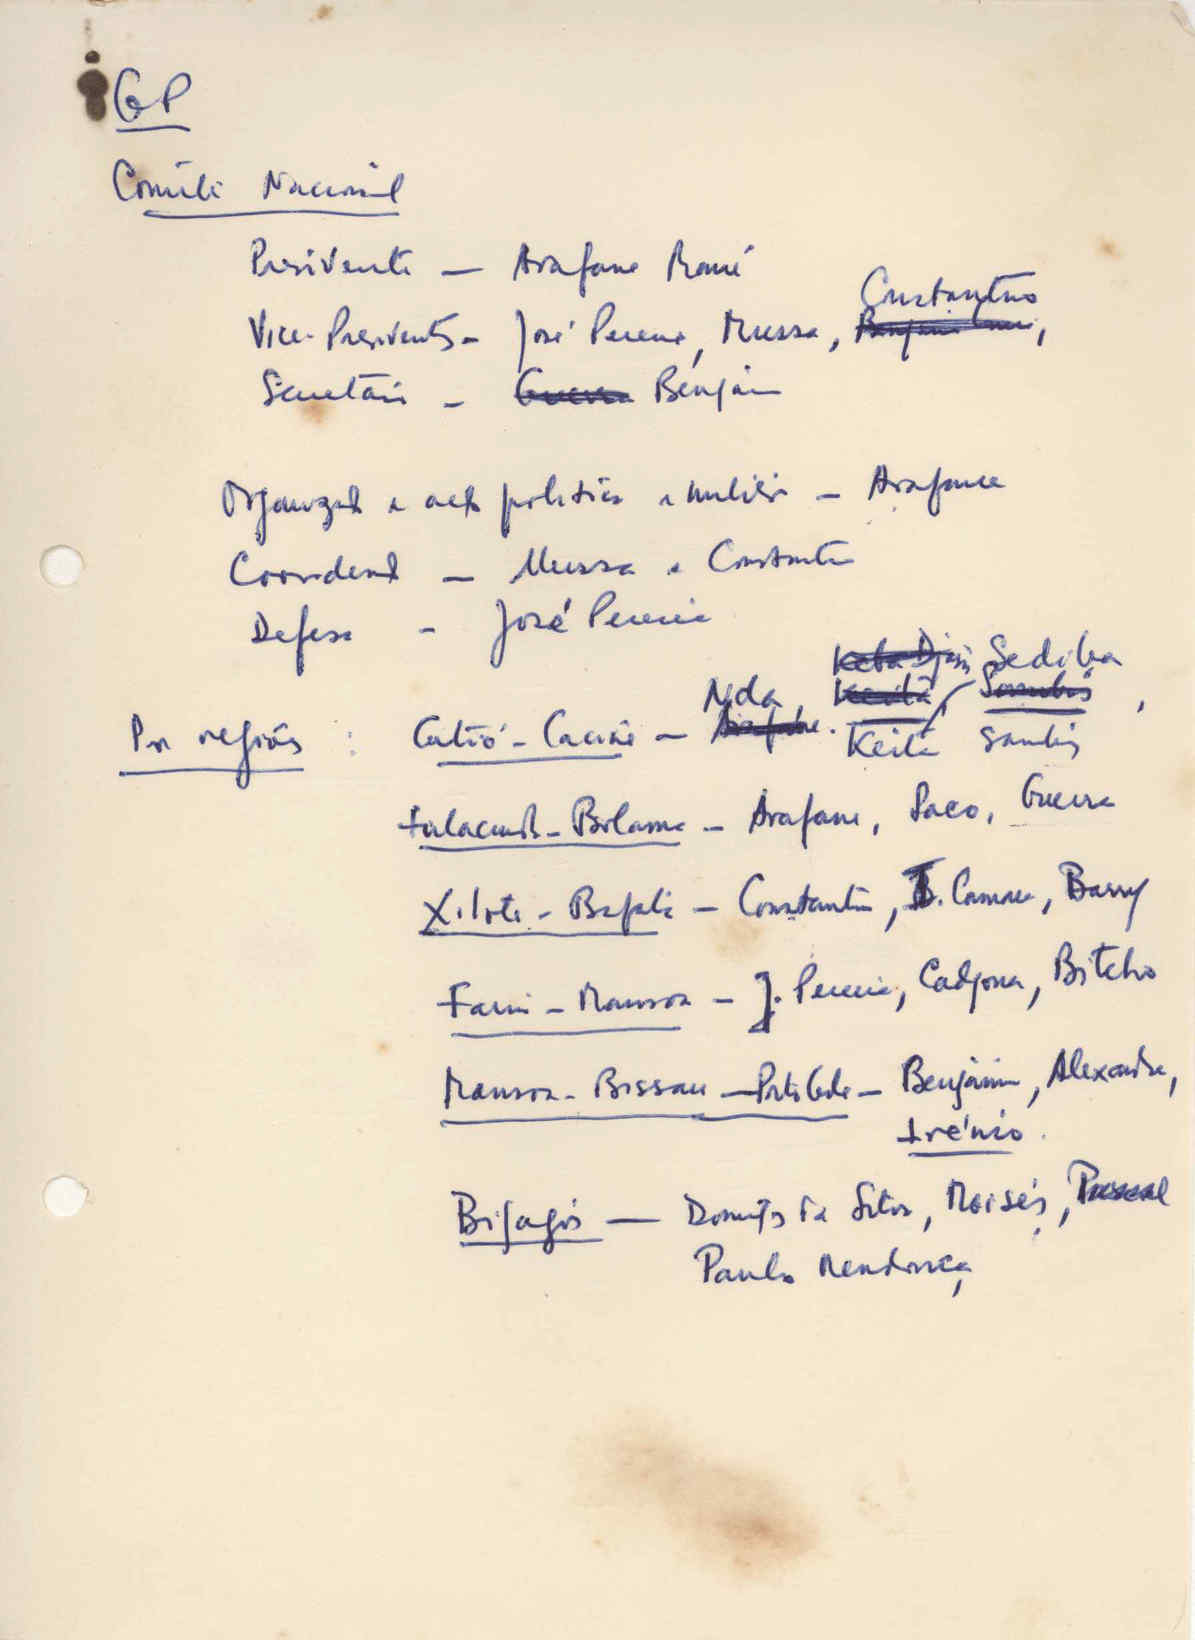 GP
Comité Nacional
Presidente — Arafane Mané
Constantino
Vice-Presidentes - José Pereira, Mussa,
Secretário - Guerra Benjamim
Organização e acção política e militar - Arafane
Coordenação — Mussa e Constantino
Defesa - José Pereira
Keba Djassi Sediba
Nda, Keitá,
Por regiões : Catió-Caciné — Arafane. Keita Sambú
Fulacunda-Bolama — Arafane, Paco, Guerra
Xitole - Bafatá — Constantino, B. Camara, Barry
Farim - Mansoa — J. Pereira, Cadjona, Bitcho
Mansoa - Bissau — — Benjamim, Alexandre,
Irénio.
Bijagós — Domingos da Silva, Moisés, Pascoal
Paulo Mendonça,